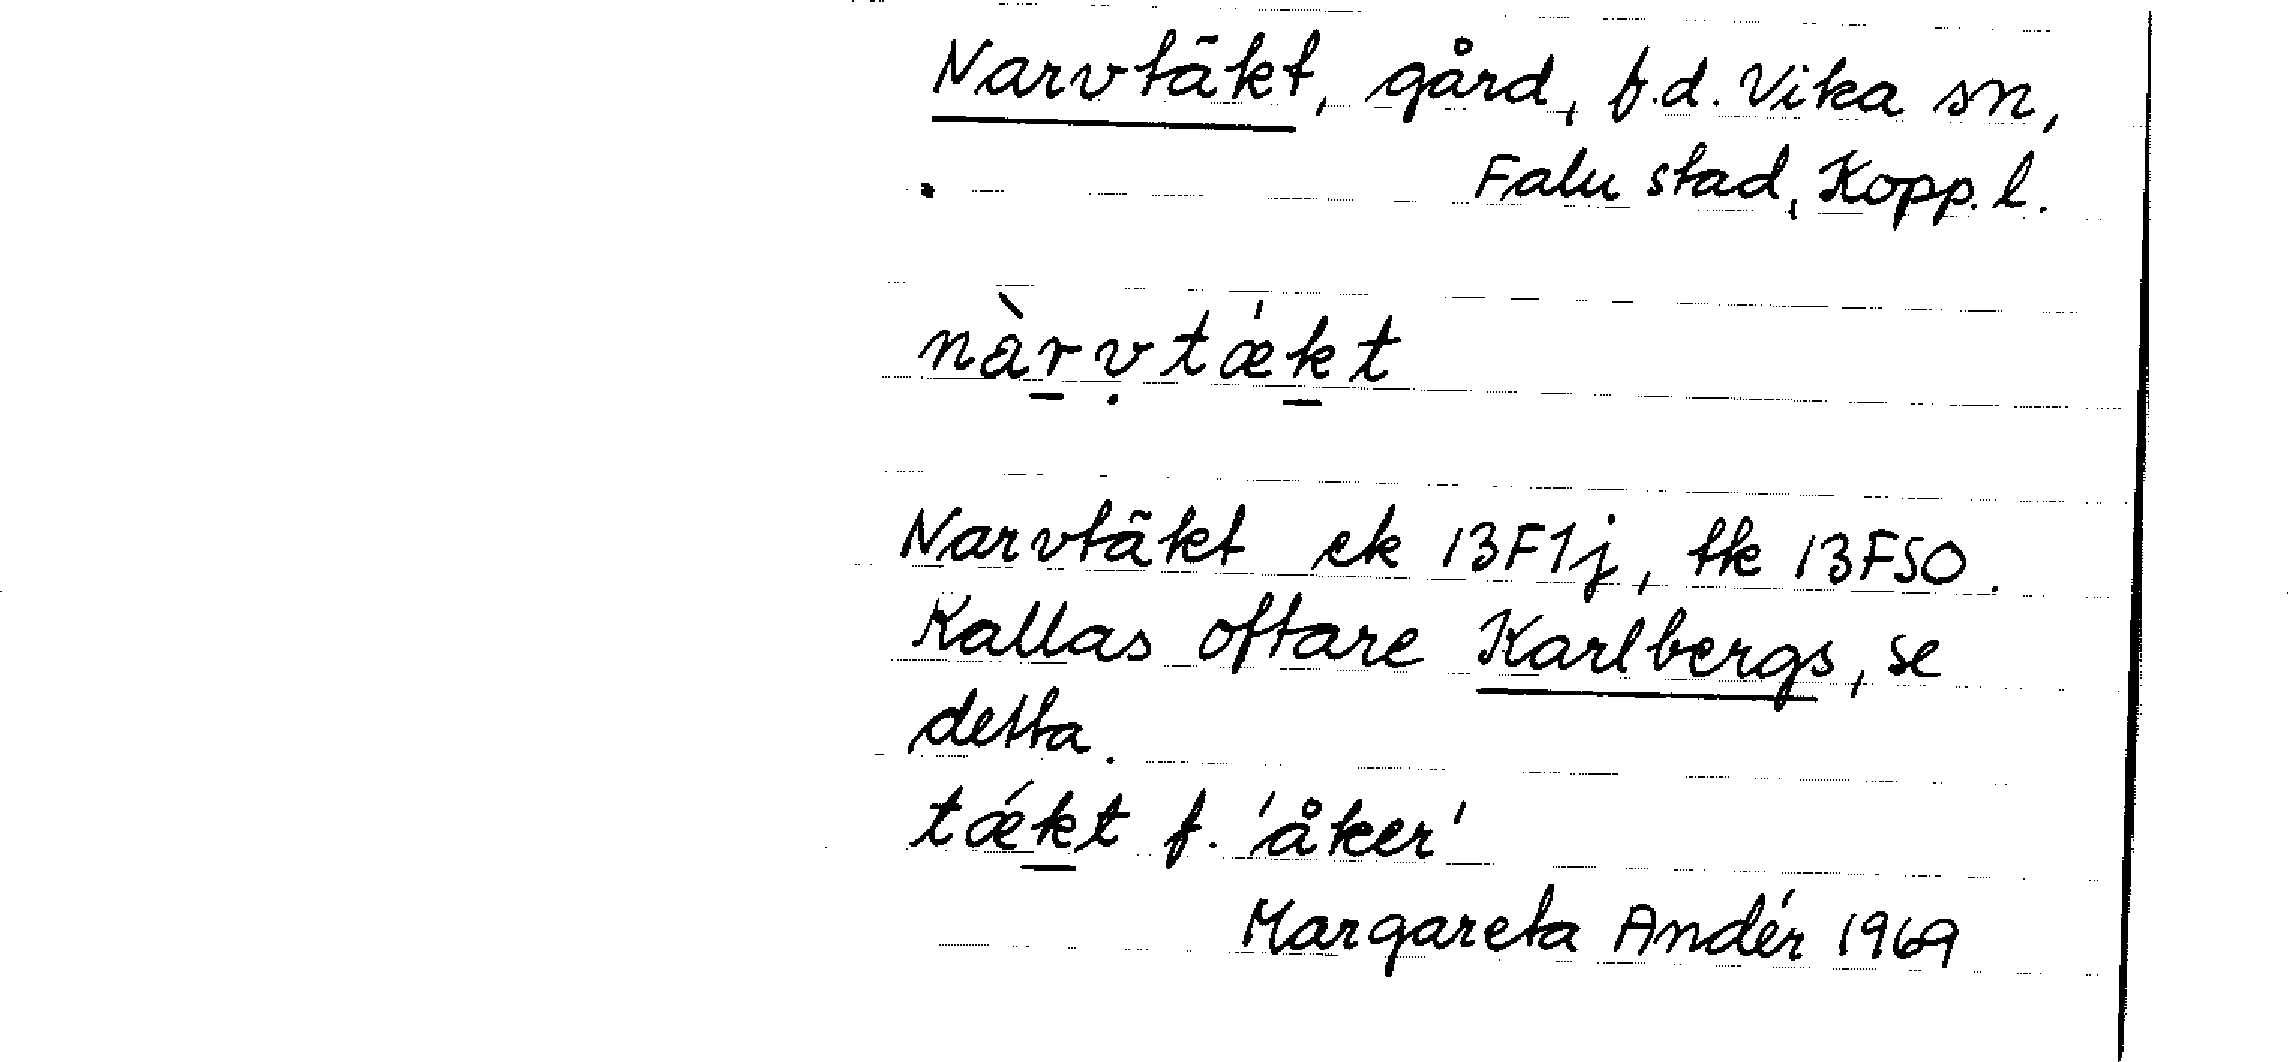 Narvtäkt, gård, f.d. Vika sn,
Falu stad, Kopp. l.
nàr̲ṿtǽk̲t
Narvtäkt ek 13F1j, tk 13FSO.
Kallas oftare Karlbergs, se
detta.
tǽk̲t f. 'åker'
Margareta Andér 1969